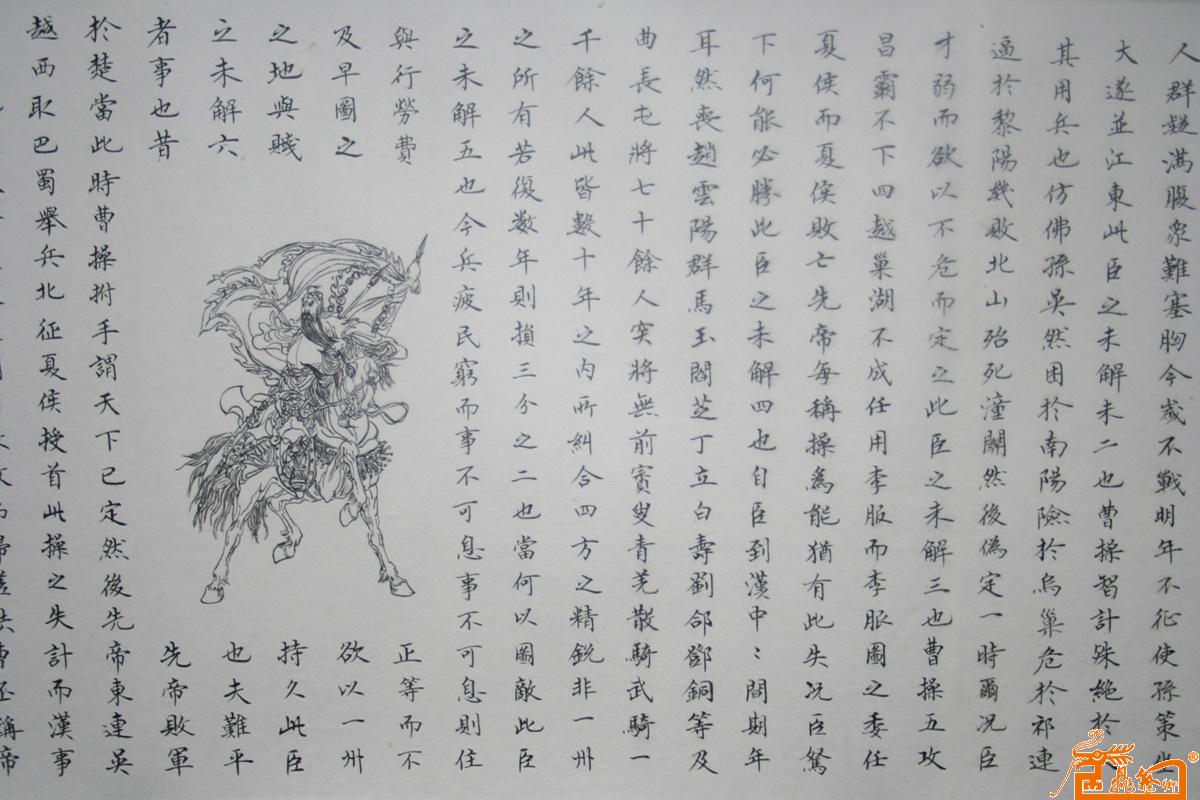 人群疑滿腹衆難塞胸今歲不戰明年不征使孫策坐
大遂並江東此臣之未解未二也曹操智計殊絕於
其用兵也仿佛孫吳然困於南陽險於烏巢危於祁連
逼於黎陽幾敗北山殆死潼關然後偽定一時爾况臣
才弱而欲以不危而定之此臣之未解三也曹操五攻
昌霸不下四越巢湖不成任用李服而李服圖之委任
夏侯而夏侯敗亡先帝每稱操為能猶有此失况臣駑
下何能必勝此臣之未解四也自臣到漢中〻間期年
耳然喪趙雲陽群馬玉閻芝丁立白壽劉郃鄧銅等及
曲長屯將七十餘人突將無前賨叟青羌散騎武騎一
千餘人此皆數十年之内所糾合四方之精銳非一州
之所有若復数年則損三分之二也當何以圖敵此臣
之未解五也今兵疲民窮而事不可息事不可息則住
與行勞費正等而不
及早圖之欲以一州
之地與賊持久此臣
之未解六也夫難平
者事也昔先帝敗軍
於楚當此時曹操拊手謂天下已定然後先帝東連吳
越西取巴蜀舉兵北征夏侯授首此操之失計而漢事